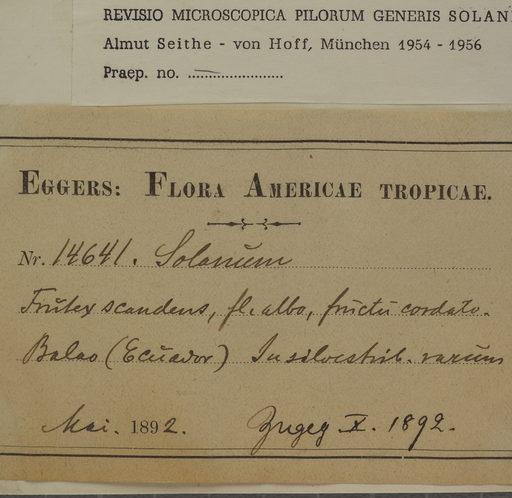 REVISIO MICROSCOPICA PILORUM GENERIS SOLAN
Almut Seithe - von Hoff, München 1954 - 1956
Praep. no. .......................
EGGERS: FLORA AMERICAE TROPICAE.
Nr. 14641. Solanum
Frutex scandens, fl. albo, fructu cordato.
Balao (Ecuador) In silvestrib. rarum
Mai. 1892. Zugeg X. 1892.